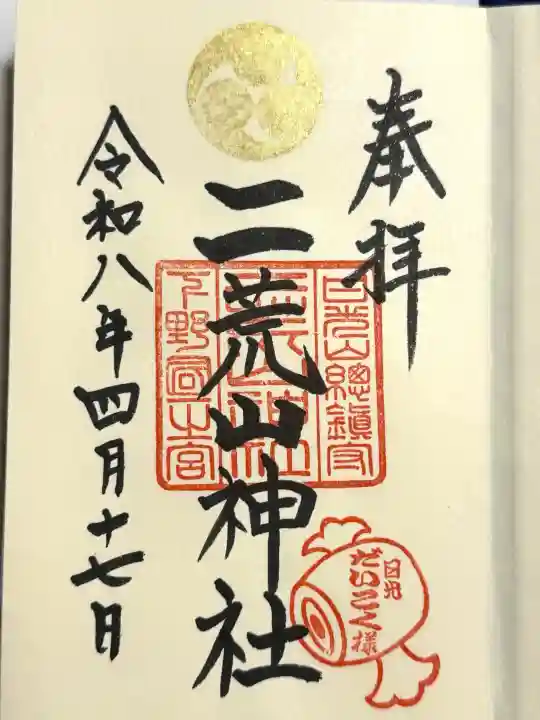 奉拝
日光山總鎮守
二荒山神社
二荒山神社
下野國一之宮
日光
だいこく様
令和八年四月十七日